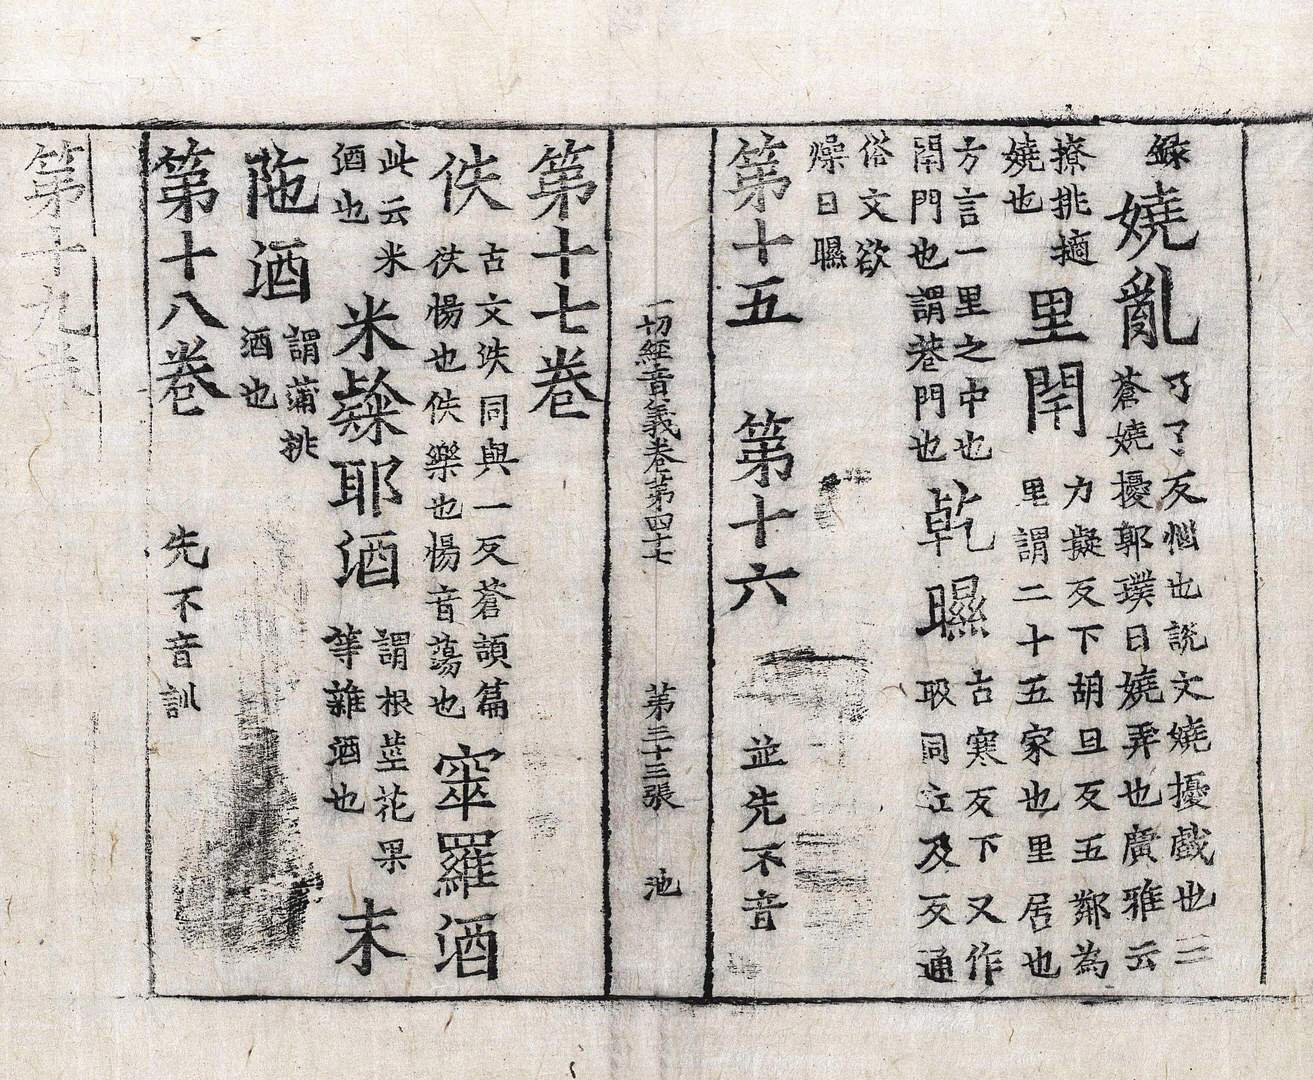 錄嬈亂乃了反惱也說文嬈擾戲也三
蒼嬈擾郭璞曰嬈弄也廣雅云
撩挑擿
嬈也里閈力擬反下胡旦反五鄰為
里謂二十五家也里居也
方言一里之中也
閈門也謂巷門也乾㬤古寒反下又作
同立及反通
俗文欲
燥曰㬤
第十五　第十六　並先不音
一切經音義卷第四十七　第三十三張　池
第十七卷
佚古文泆同與一反蒼頡篇
佚愓也佚樂也愓音蕩也窣羅酒
此云米
酒也米耶酒謂根莖花果
等雜酒也末
陁酒謂蒲桃
酒也
第十八卷　先不音訓
第十九卷